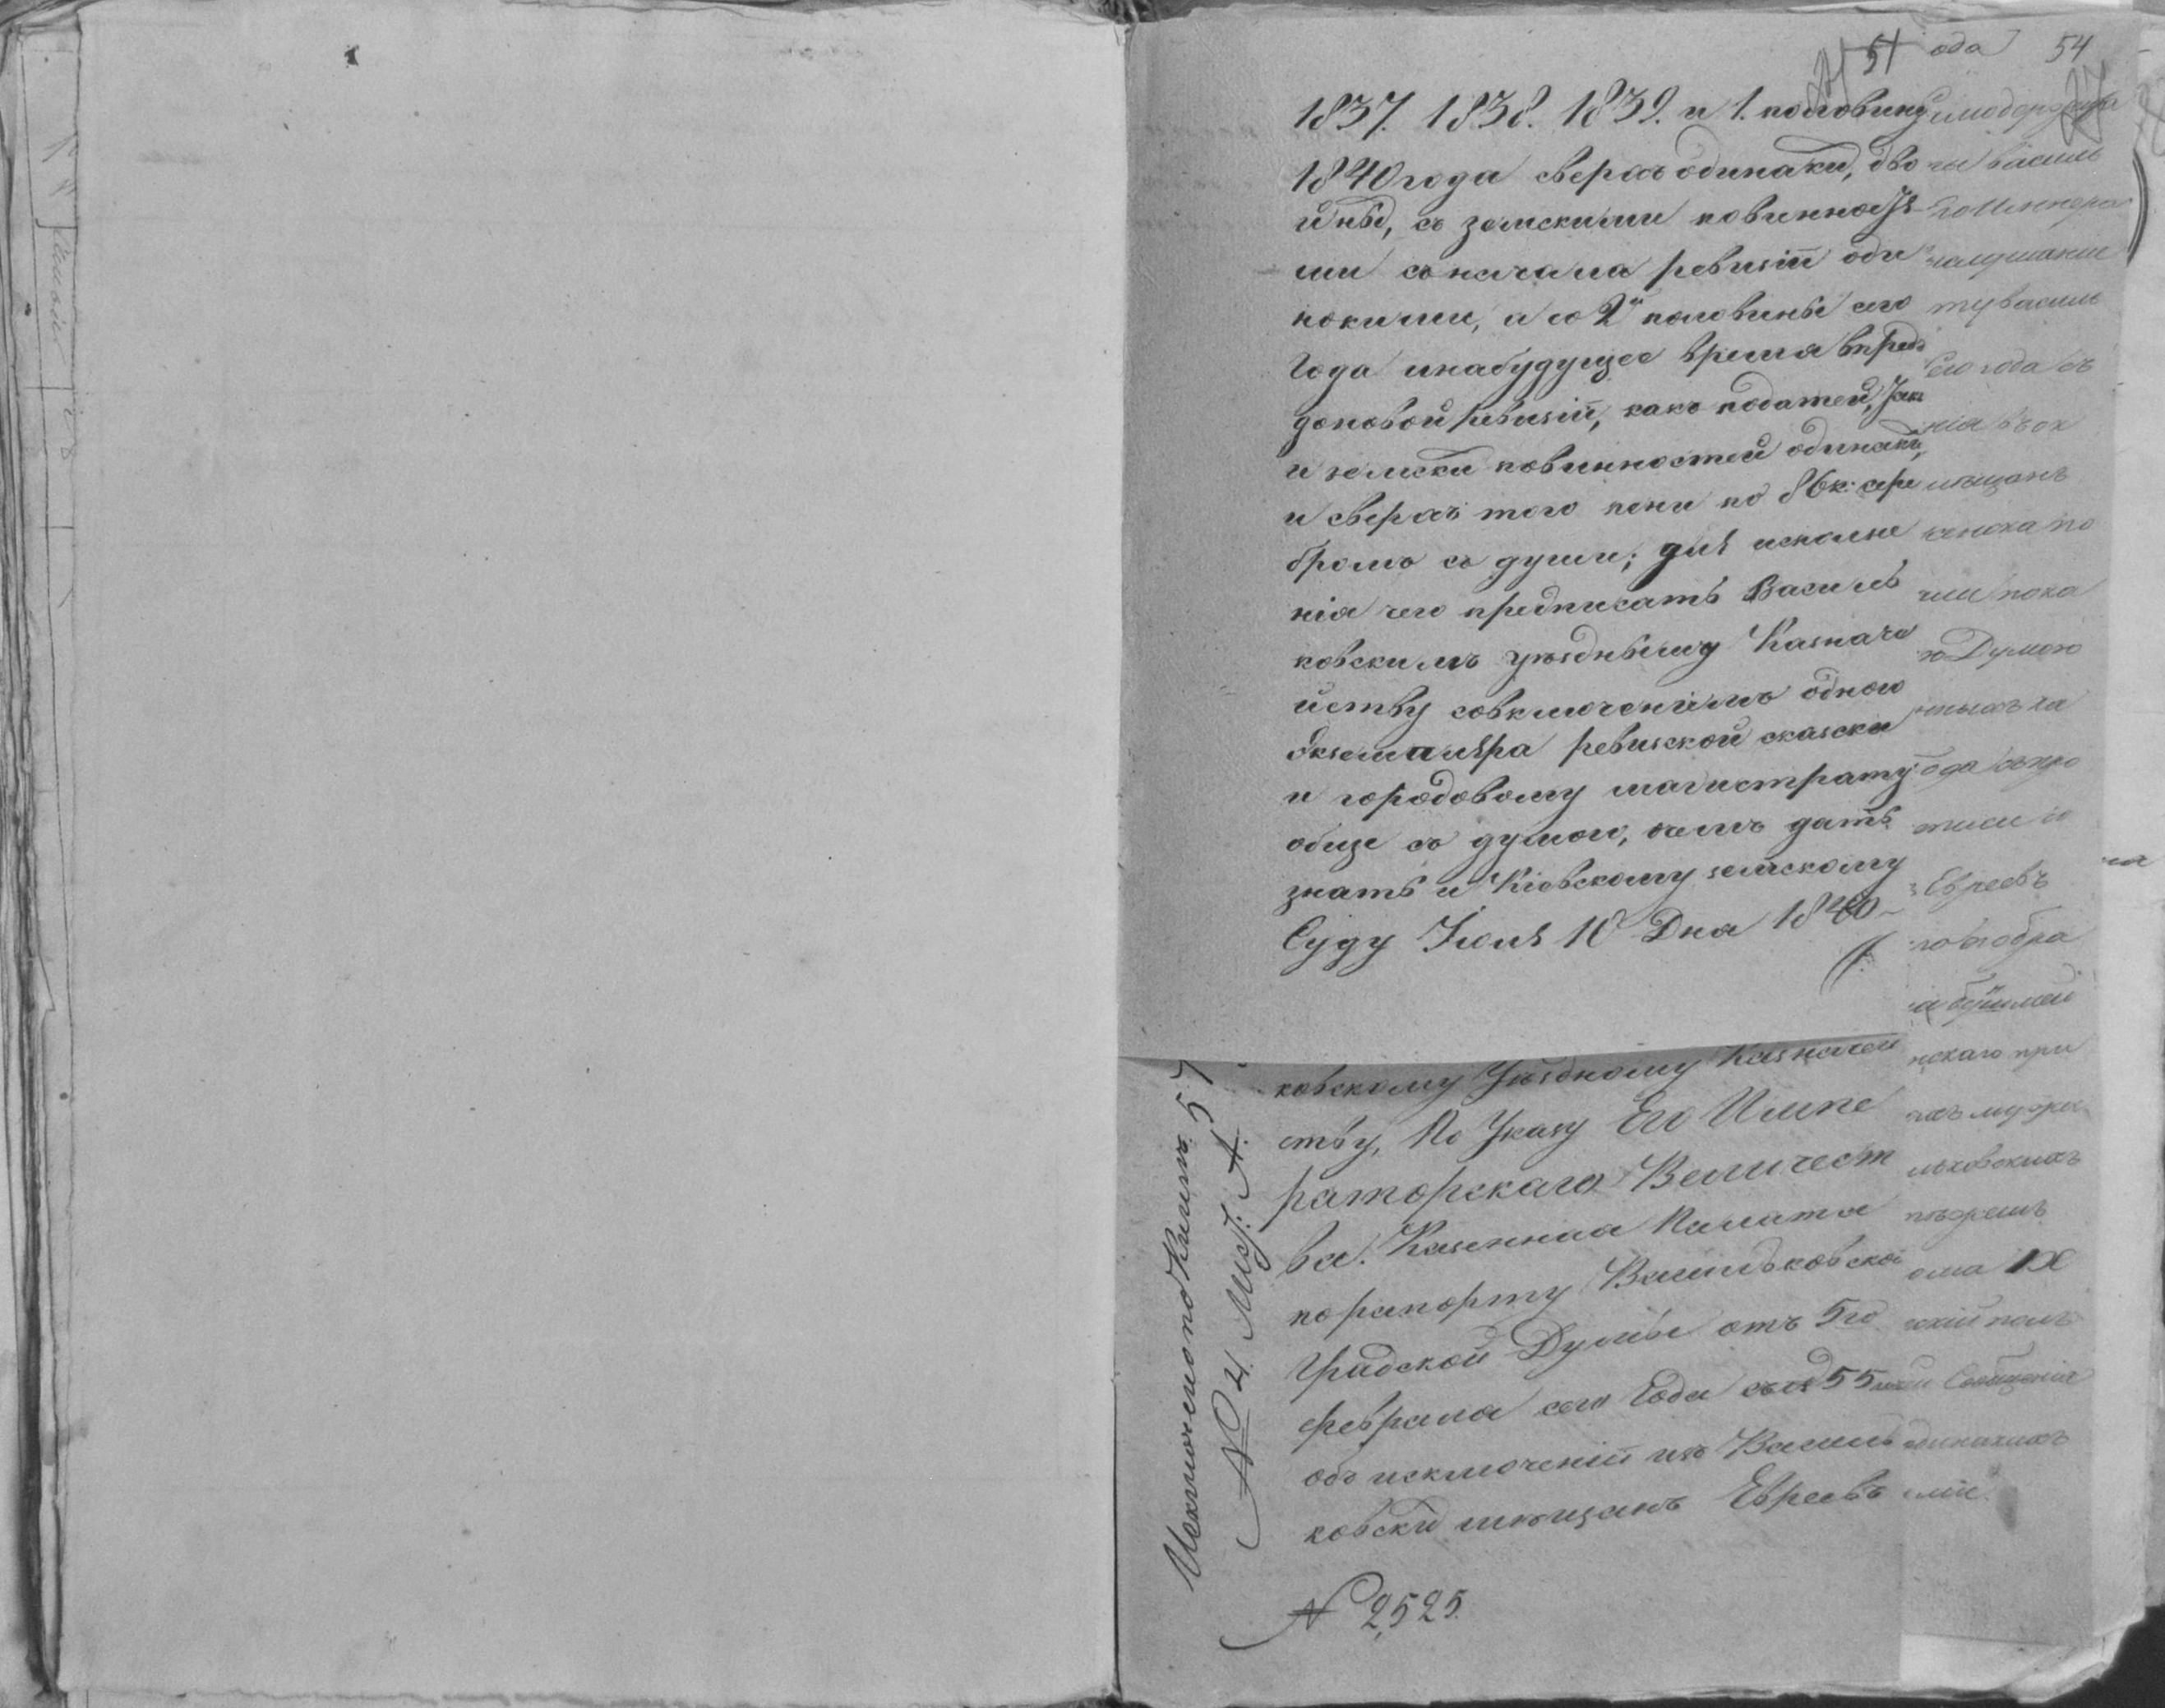 51 ода 54
27
1837. 1838. 1839. и 1. половину
1840 года сверхъ одинаки, дво
йны, съ земскими повинностя
ми съ начала ревизіи оди
нокими, а со 2й половины сего
Года и на будущее время впредь
до новой Ревизіи, какъ податей, так
и земски повинностей одинаки,
и сверхъ того пени по 86 к: сере
бромъ съ души; для исполне
нія чего предписать Василь
ковскимъ уѣздному Казначе
йству совключеніемъ одного
Экземпляра ревизской сказки
и городовому магистрату
обще съ думою, о чемъ дать
знать и Кіевскому земскому
Суду Іюля 10 Дня 1840
ковскому Уѣздному Казначей
ству, По Указу Его Импе
раторскаго Величест
ва. Казенная Палата
по рапорту Васильковской
Градской Думы отъ 5го
февраля сего Года за № 55
объ исключеніи изъ Василь
ковски мѣщанъ Евреевъ
№ 2,525.
Исключено по Книгѣ 57
№ 4. Лист: А.
чи василь
ту василь
сего года съ
мѣщанъ
ю Думою
ода
Евреевъ
нскаго при
льковскихъ
ома IX
скій полъ
Сообщенія
динакихъ